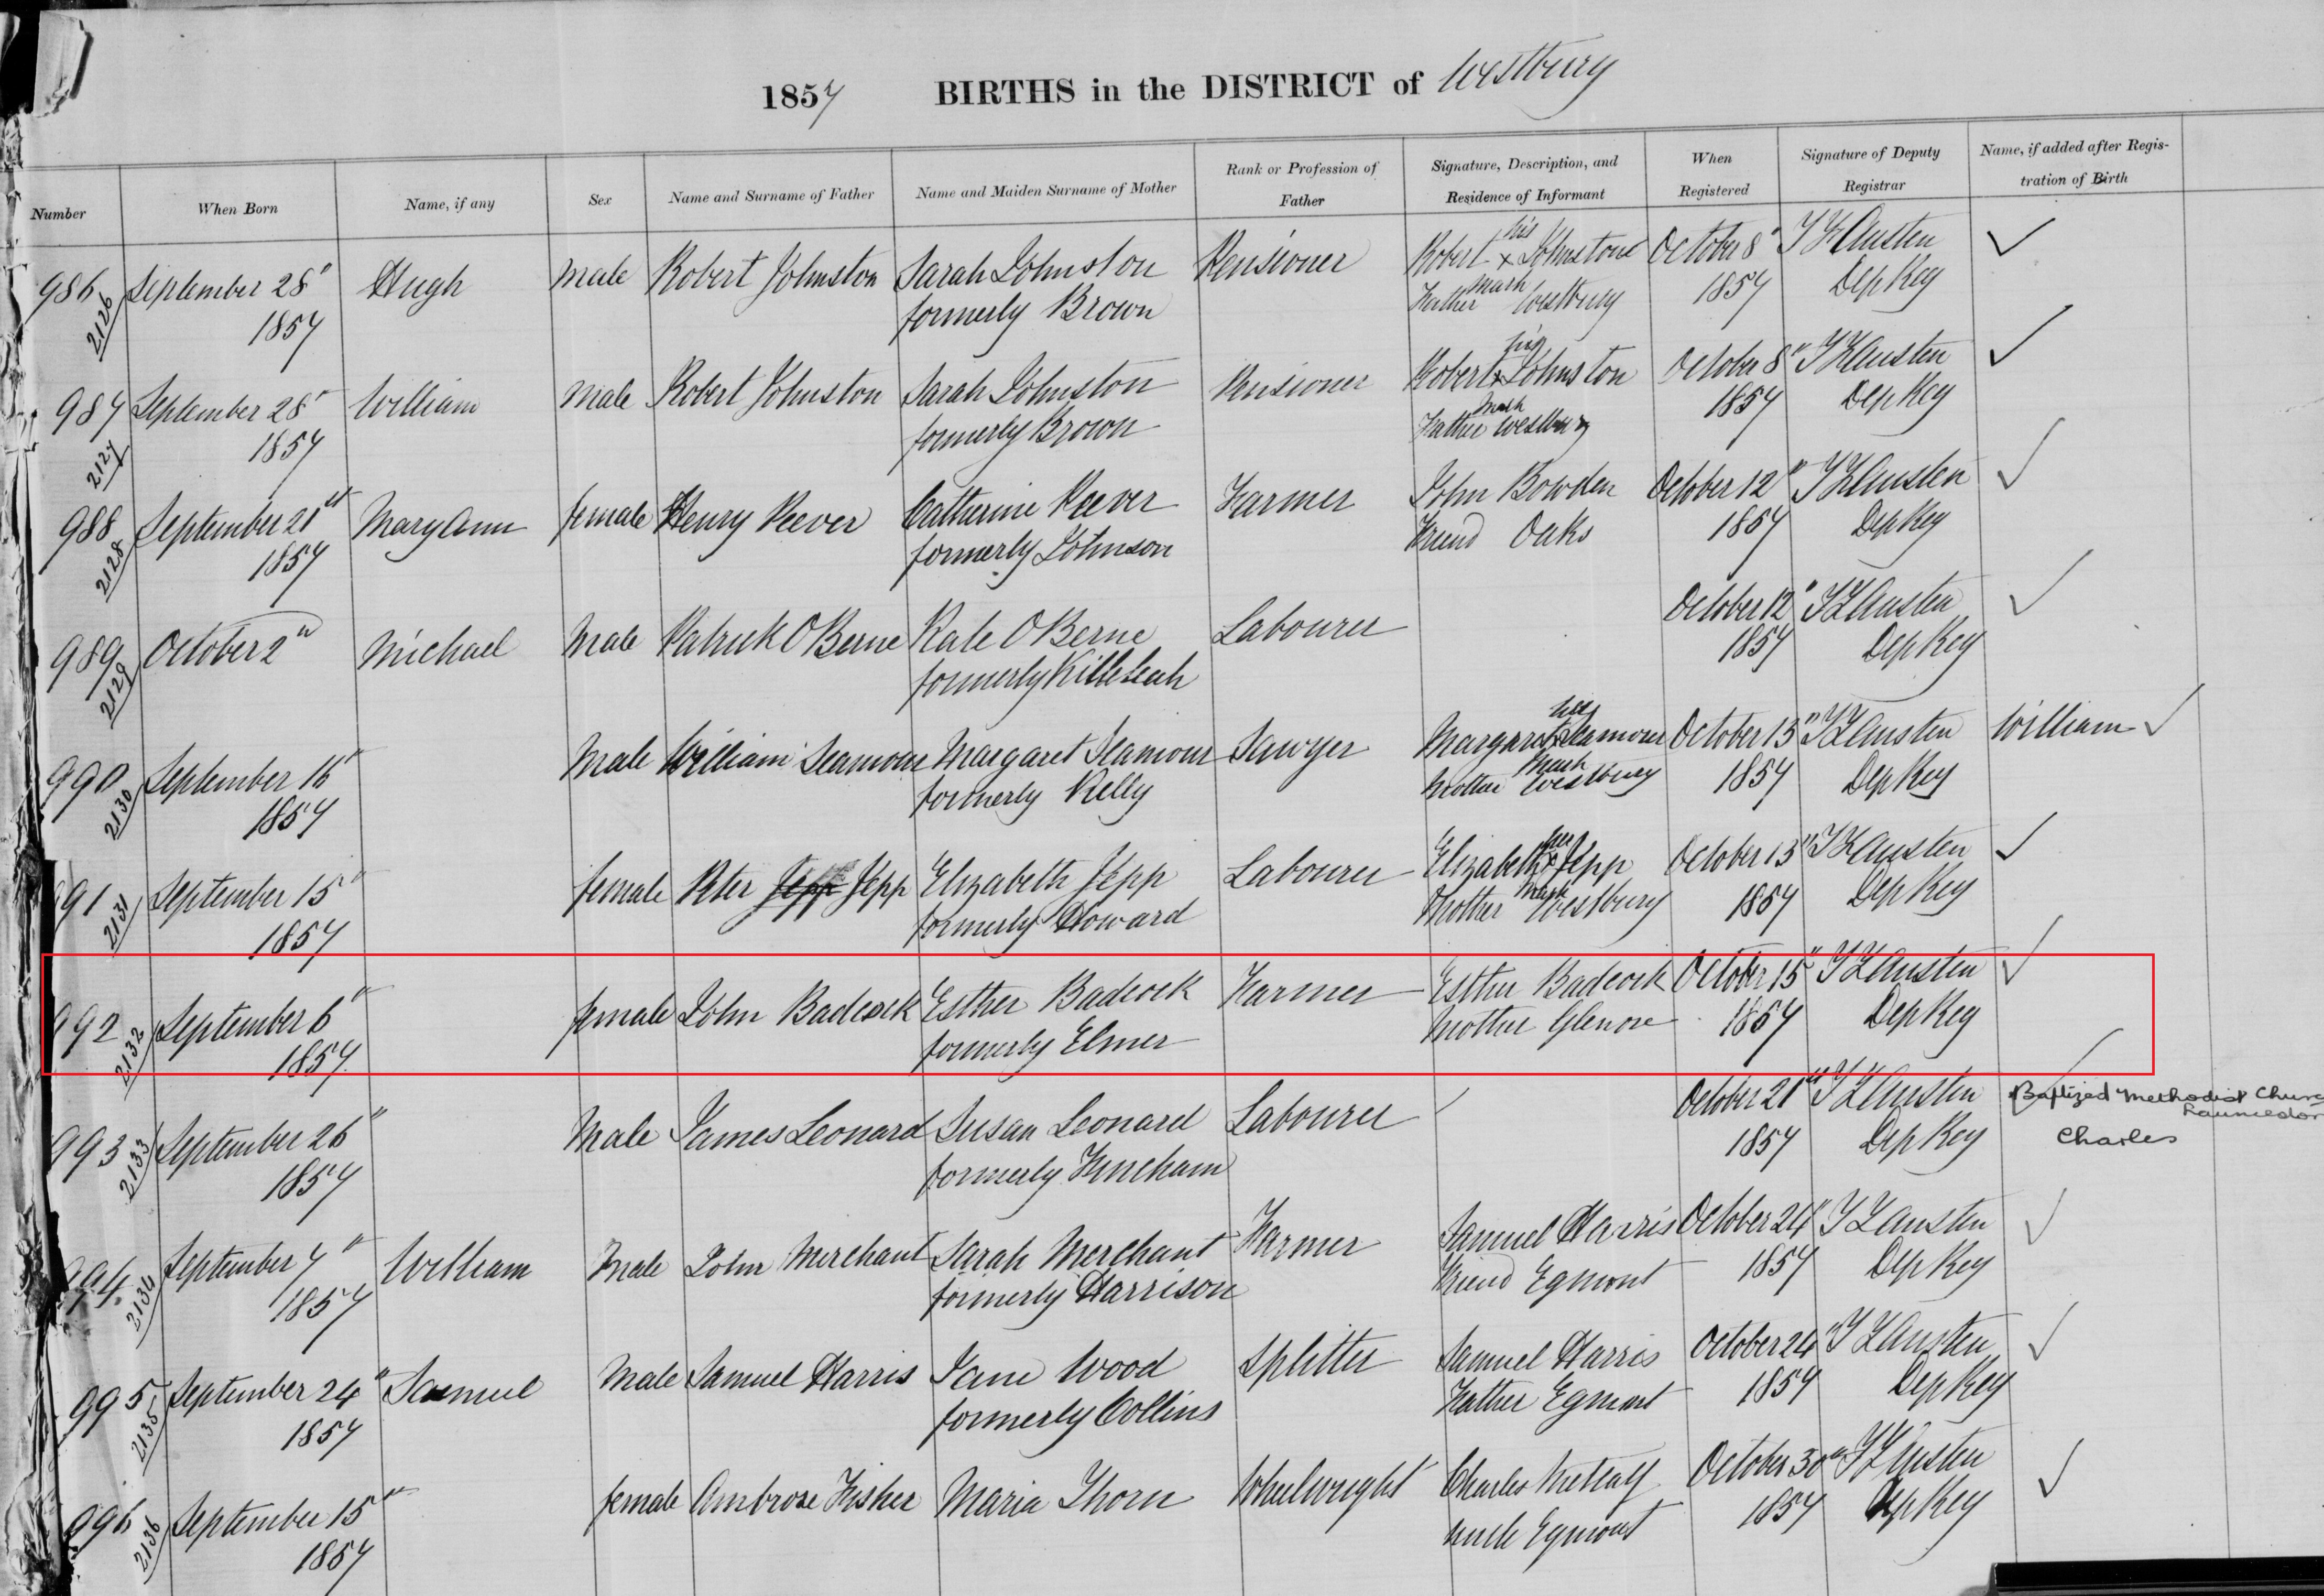 1857 BIRTHS in the DISTRICT of Westbury
Number When Born Name, if any Sex Name and Surname of Father Name and Maiden Surname of Mother Rank or Profession of Father Signature, Description, and Residence of Informant When Registered Signature of Deputy Registrar Name, if added after Registration of Birth
986 September 28" Hugh male Robert Johnston Sarah Johnston Pensioner Robert his x Johnstone October 8" Austen ✓
2126 1857 formerly Brown Father mark Westbury 1857 Dep Reg
987 September 28" William male Robert Johnston Sarah Johnston Pensioner Robert his x Johnston October 8" Austen ✓
2127 1857 formerly Brown Father mark Westbury 1857 Dep Reg
988 September 21st Mary Ann female Henry Peever Catherine Peever Farmer John Bowden October 12" Austen ✓
2128 1857 formerly Johnson Friend Oaks 1857 Dep Reg
989 October 2" Michael Male Patrick O Berne Kate O Berne Labourer October 12" Austen ✓
2129 formerly Killeleah 1857 Dep Reg
990 September 16" Male William Seamour Margaret Seamour Sawyer Margaret her x Seamour October 13" Austen William ✓
2130 1857 formerly Kelly mother mark Westbury 1857 Dep Reg
991 September 15" female Peter Jepp Jepp Elizabeth Jepp Labourer Elizabeth her x Jepp October 13" Austen ✓
2131 1857 formerly Howard Mother Mark Westbury 1857 Dep Reg
992 September 6" female John Badcock Esther Badcock Farmer Esther Badcock October 15" Austen ✓
2132 1857 formerly Elmer mother Glenore 1857 Dep Reg
993 September 26" Male James Leonard Susan Leonard Labourer October 21st Austen ✓ Baptized Methodist Church
2133 1857 formerly Fincham 1857 Dep Reg Charles
994 September 7" William Male John Merchant Sarah Merchant Farmer Samuel Harris October 24" Austen ✓
2134 1857 formerly Harrison Friend Egmont 1857 Dep Reg
995 September 24" Samuel Male Samuel Harris Jane Wood Splitter Samuel Harris October 24" Austen ✓
2135 1857 formerly Collins Father Egmont 1857 Dep Reg
996 September 15" female Ambrose Fisher Maria Thorn Wheelwright Charles Metcalf October 30" Austen ✓
2136 1857 uncle Egmont 1857 Dep Reg